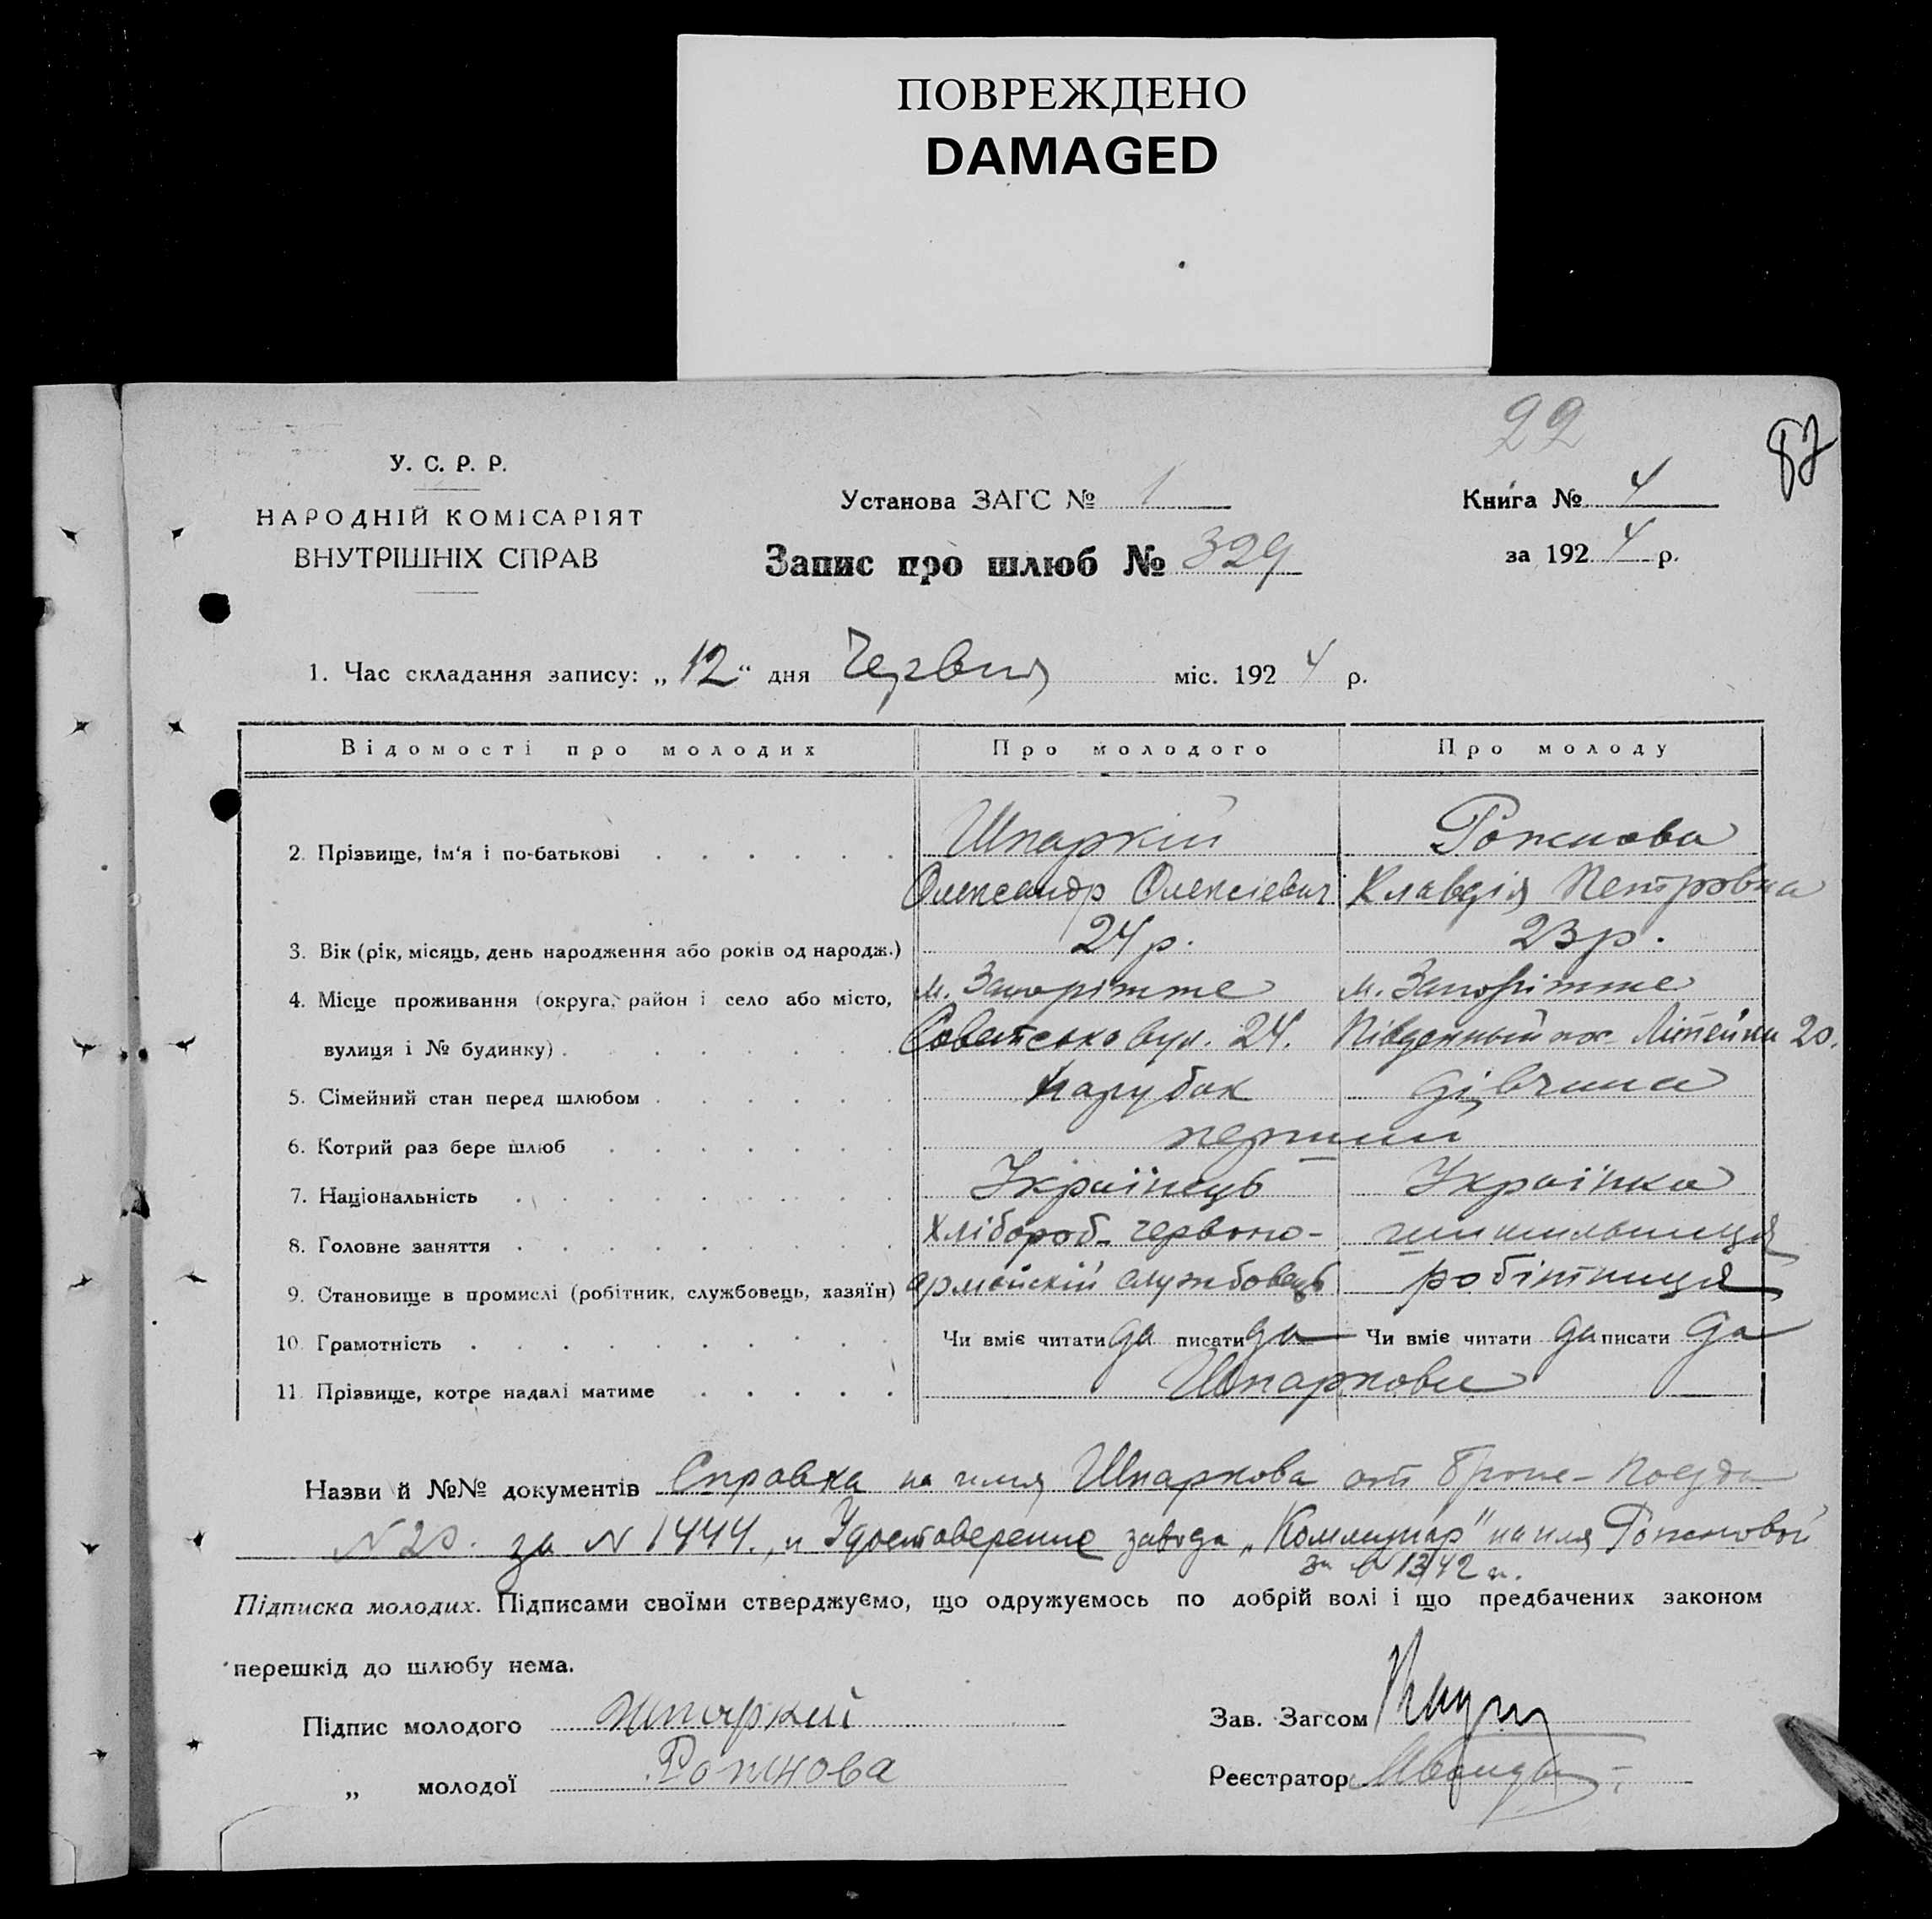 ПОВРЕЖДЕНО
DAMAGED
22
87
У. С. Р. Р.
НАРОДНІЙ КОМІСАРІЯТ
ВНУТРІШНІХ СПРАВ
Установа ЗАГС № 1
Запис про шлюб № 329
Книга № 4
за 1924 р.
1. Час складання запису: „12“ дня Червня міс. 1924 р.
Відомості про молодих Про молодого Про молоду
2. Прізвище, ім'я і по-батькові Шпаркій Рожнова
Олександр Олексієвич Клавдія Петровна
3. Вік (рік, місяць, день народження або років од народж.) 24 р. 23 р.
4. Місце проживання (округа, район і село або місто, м. Запоріжже м. Запоріжже
вулиця і № будинку) Советсько вул. 24. Південный пос. Литейна 20.
5. Сімейний стан перед шлюбом парубок дівчина
6. Котрий раз бере шлюб перший
7. Національність Українець Українка
8. Головне заняття Хлібороб- червоно-
9. Становище в промислі (робітник, службовець, хазяїн) армейскій службовець робітниця
10. Грамотність Чи вміє читати да писати да Чи вміє читати да писати да
11. Прізвище, котре надалі матиме Шпаркови
Назви й №№ документів Справка на имя Шпаркова от Броне-Поезда
N 20. за N 1444., и Удостоверение завода „Коммунар" на имя Рожновой
за N 1342
Підписка молодих. Підписами своїми стверджуємо, що одружуємось по добрій волі і що предбачених законом
перешкід до шлюбу нема.
Підпис молодого Шпаркий
„ молодої Рожнова
Зав. Загсом
Реєстратор